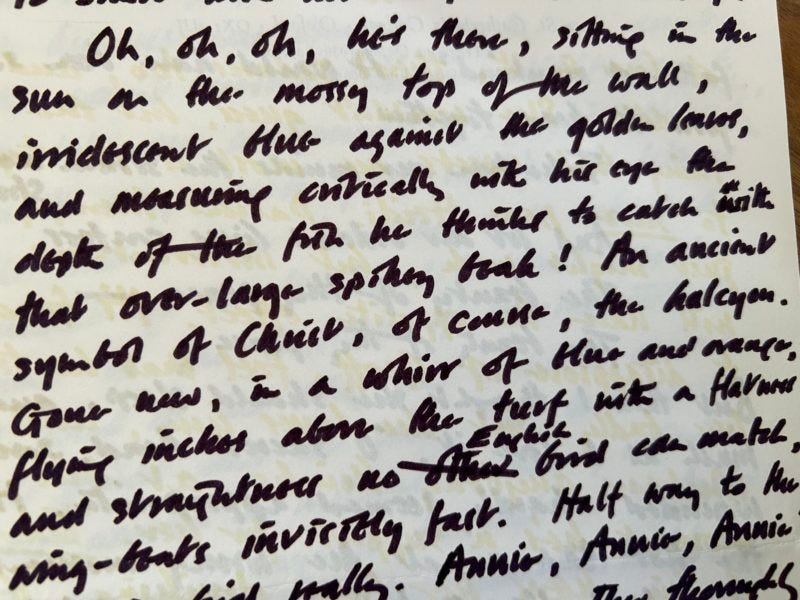 Oh, oh, oh, he's there, sitting in the
sun on the mossy top of the wall,
irridescent blue against the golden leaves,
and measuring critically with his eye the
depth of the fish he thinks to catch with
that over-large spikey beak! An ancient
symbol of Christ, of course, the halcyon.
Gone now, in a whirr of blue and orange,
flying inches above the turf with a flatness
English
and straightness no other bird can match,
wing-beats invisibly fast. Half way to the
bird really. Annie, Annie, Annie
thoroughly